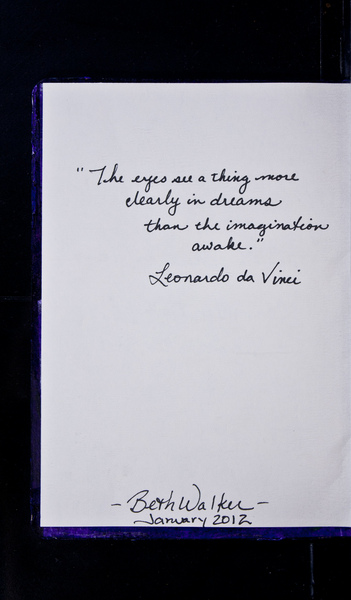 "The eyes see a thing more
clearly in dreams
than the imagination
awake."
Leonardo da Vinci
- Beth Walker -
January 2012